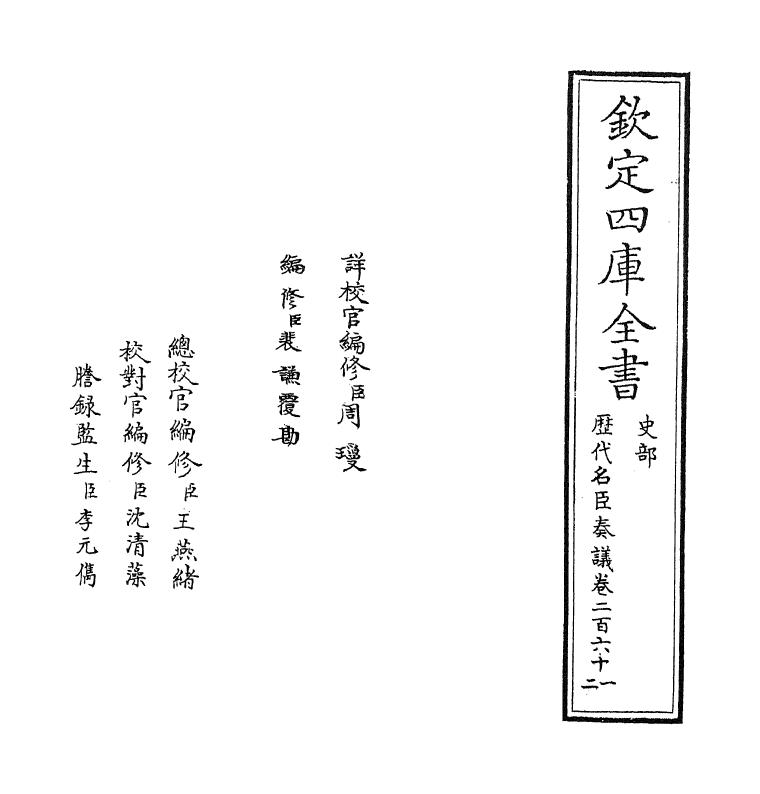 欽定四庫全書
史部
歴代名臣奏議卷二百六十一二
詳校官編修臣周瓊
編修臣裴謙覆勘
總校官編修臣王燕緒
校對官編修臣沈清藻
謄録監生臣李元儁